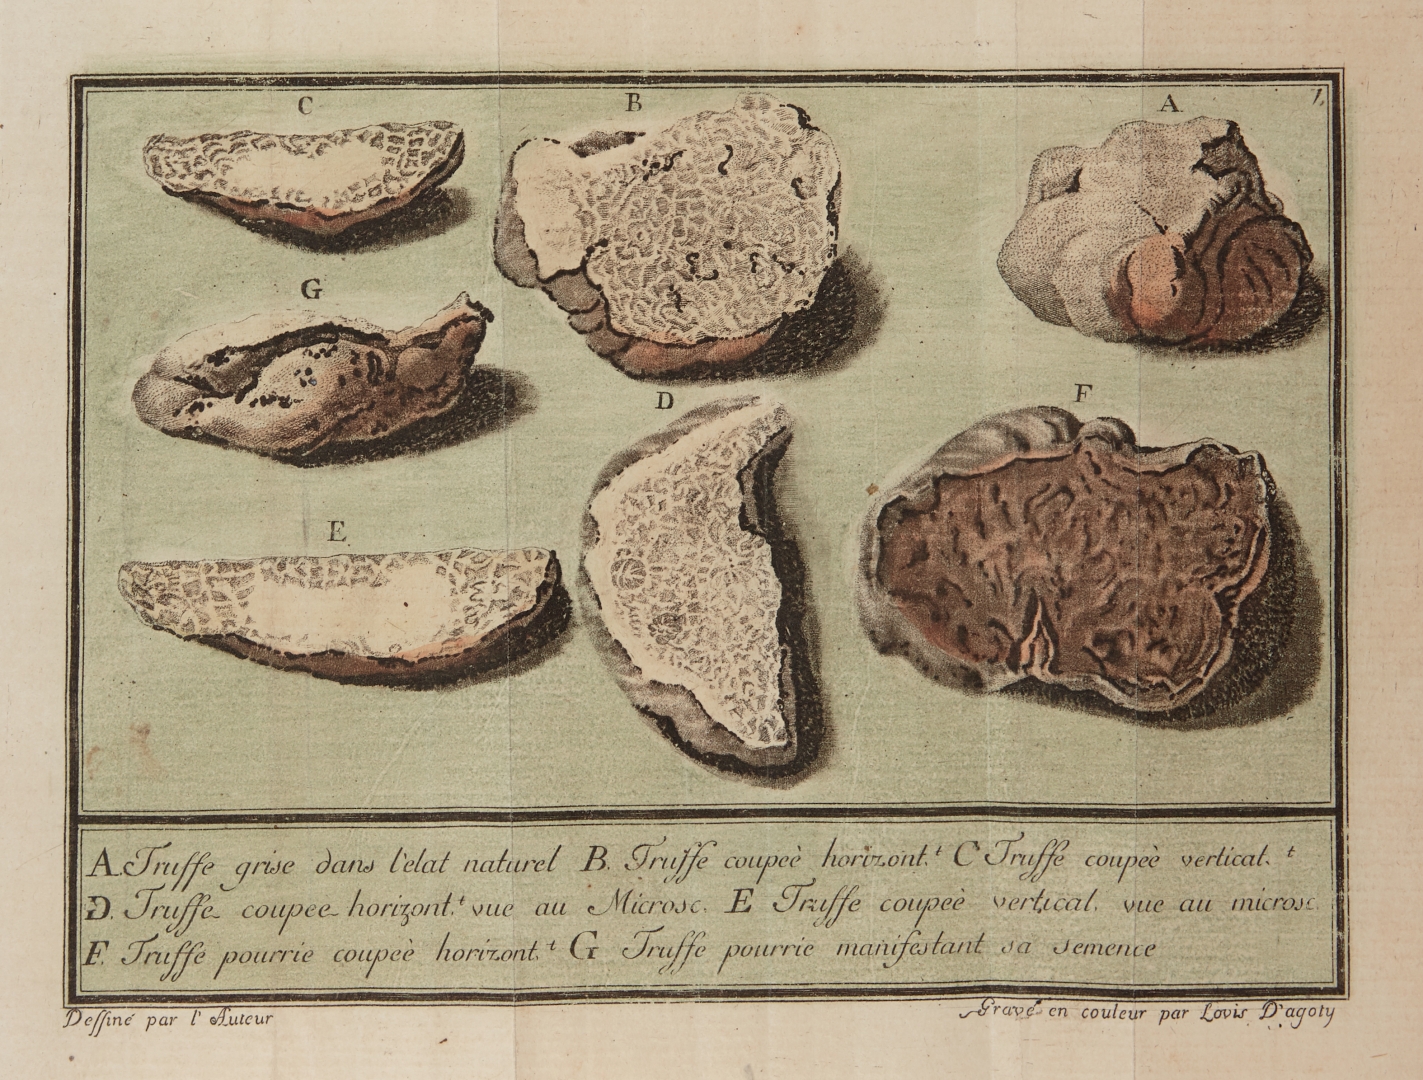 C
B
A.
1,
G
D
F
E
A. Truffe grise dans l'etat naturel B. Truffe coupeè horizont.t C Truffe coupeè vertical. t
D. Truffe coupee horizont.t vue au Microsc. E Truffe coupeè vertical. vue au microsc.
F. Truffe pourrie coupeè horizont.t G Truffe pourrie manifestant sa semence
Dessiné par l' Auteur
Gravé en couleur par Lovis D'agoty